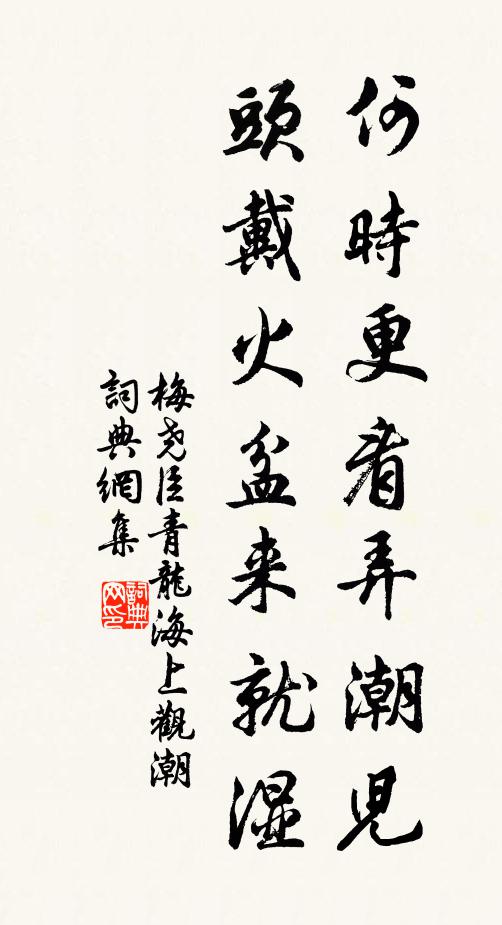 何時更看弄潮児
頭戴火盆来就湿
梅尧臣青龍海上觀潮
詞典網集
詞典网印